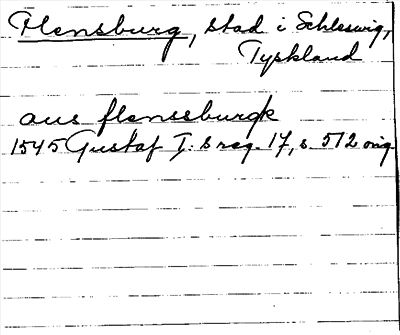 Flensburg, stad i Schleswig,
Tyskland
aus flenssburgk
1545 Gustaf I:s reg. 17, s. 512 orig.